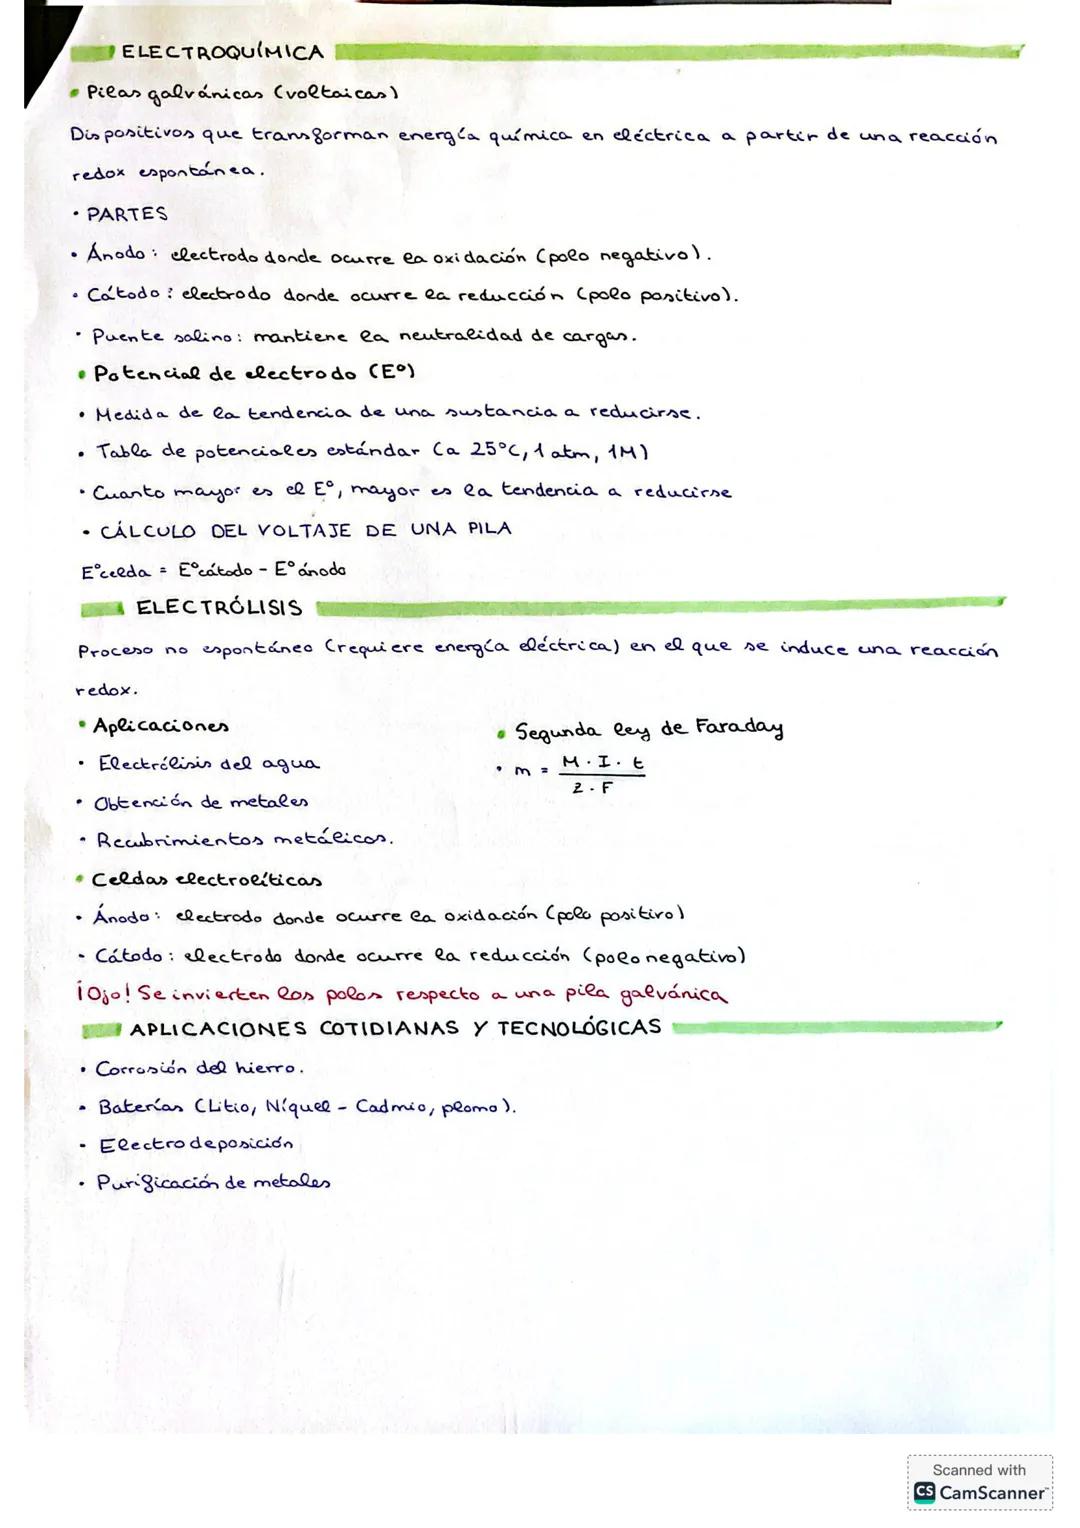 ELECTROQUÍMICA
• Pilas galvánicas (voltaicas)
Dispositivos que transforman energía química en eléctrica a partir de una reacción
redox espontánea.
• PARTES
• Ánodo: electrodo donde ocurre la oxidación (polo negativo).
• Cátodo: electrodo donde ocurre la reducción (polo positivo).
• Puente salino: mantiene la neutralidad de cargas.
• Potencial de electrodo (Eº)
• Medida de la tendencia de una sustancia a reducirse.
• Tabla de potenciales estándar (a 25ºC, 1 atm, 1M)
• Cuanto mayor es el Eº, mayor es la tendencia a reducirse
• CÁLCULO DEL VOLTAJE DE UNA PILA
Eºcelda = Eºcátodo - Eºánodo
ELECTRÓLISIS
Proceso no espontáneo (requiere energía eléctrica) en el que se induce una reacción
redox.
• Aplicaciones
• Electrólisis del agua
• Obtención de metales
• Recubrimientos metálicos.
• Segunda ley de Faraday
• m = M · I · t
z · F
• Celdas electrolíticas
• Ánodo: electrodo donde ocurre la oxidación (polo positivo)
• Cátodo: electrodo donde ocurre la reducción (polo negativo)
¡Ojo! Se invierten los polos respecto a una pila galvánica
APLICACIONES COTIDIANAS Y TECNOLÓGICAS
• Corrosión del hierro.
• Baterías (Litio, Níquel - Cadmio, plomo).
• Electrodeposición
• Purificación de metales
Scanned with
CS CamScanner